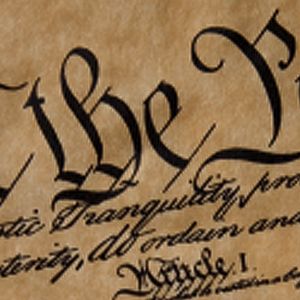 the P
stic Tranquility, pro
sterity, do ordain and
Article. I.